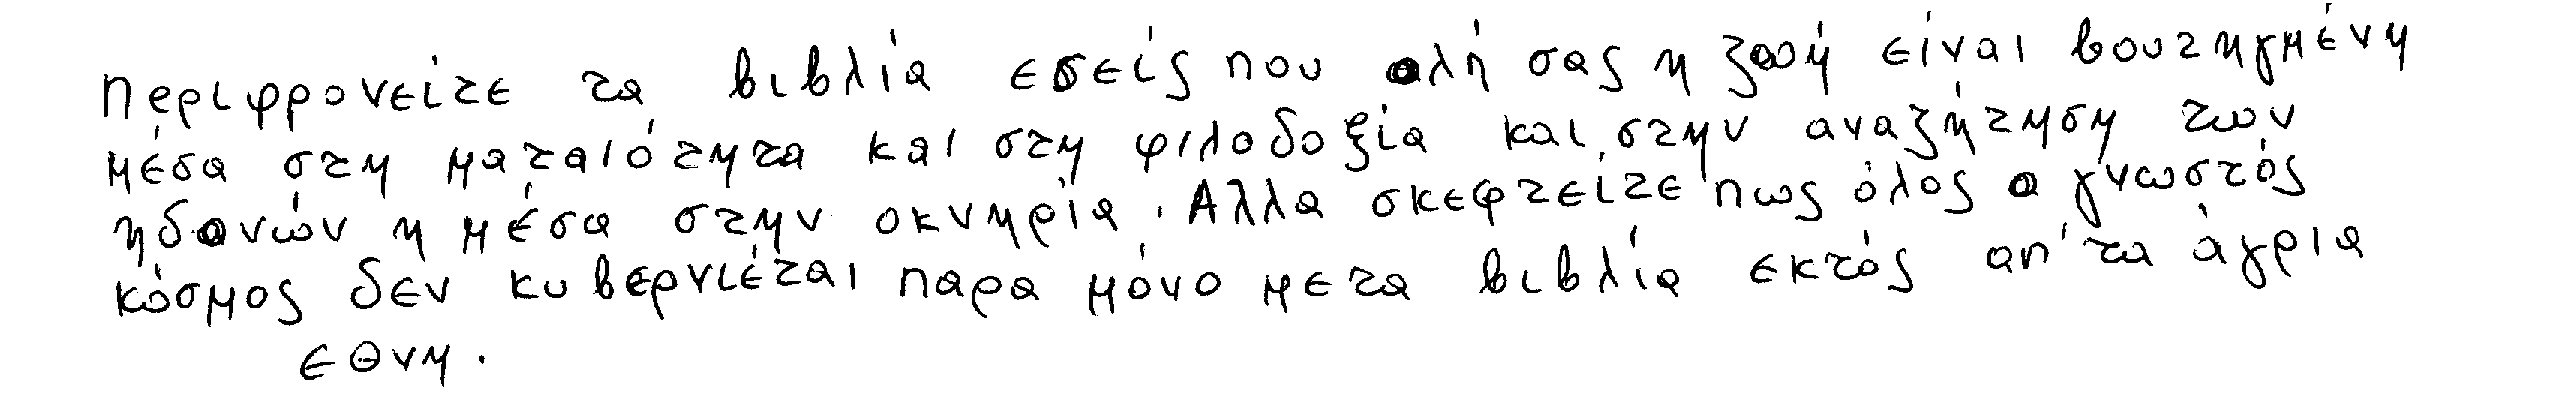 Περιφρονείτε τα βιβλία εσείς που ολή σας η ζωή είναι βουτηγμένη
μέσα στη ματαιότητα και στη φιλοδοξία και στην αναζήτηση των
ηδονών η μέσα στην οκνηρία. Αλλα σκεφτείτε πως όλος ο γνωστός
κόσμος δεν κυβερνιέται παρα μόνο μετα βιβλία εκτός απ' τα άγρια
εθνη.